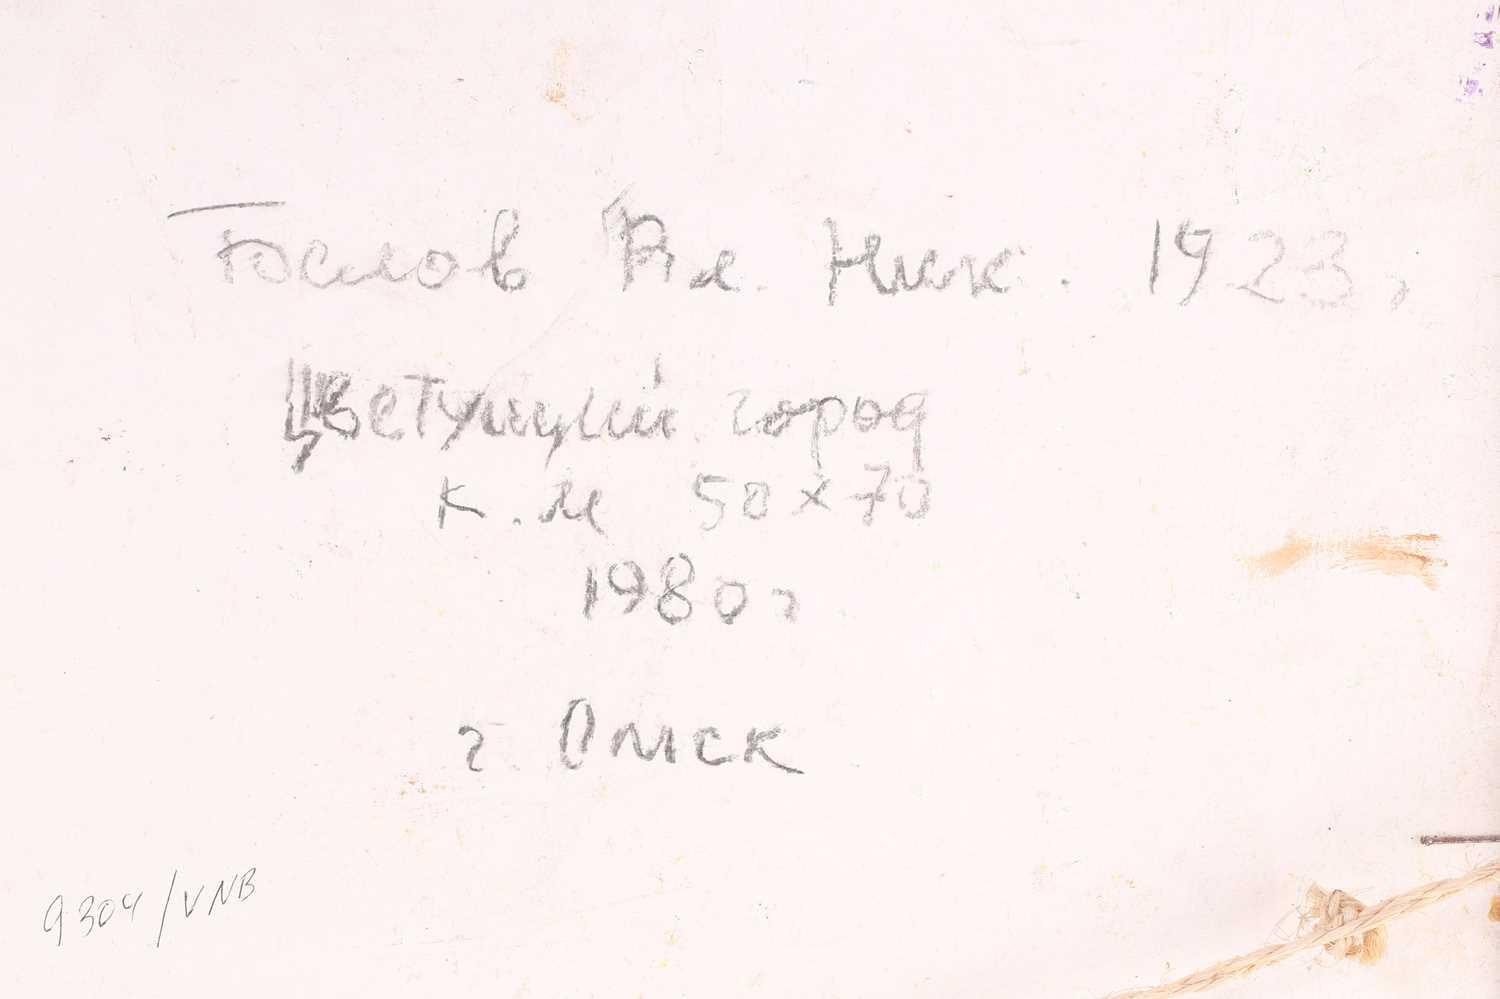 Белов Вл. Ник. 1923,
Цветущий город
к.м 50х70
1980г
г. Омск
9304/VNB